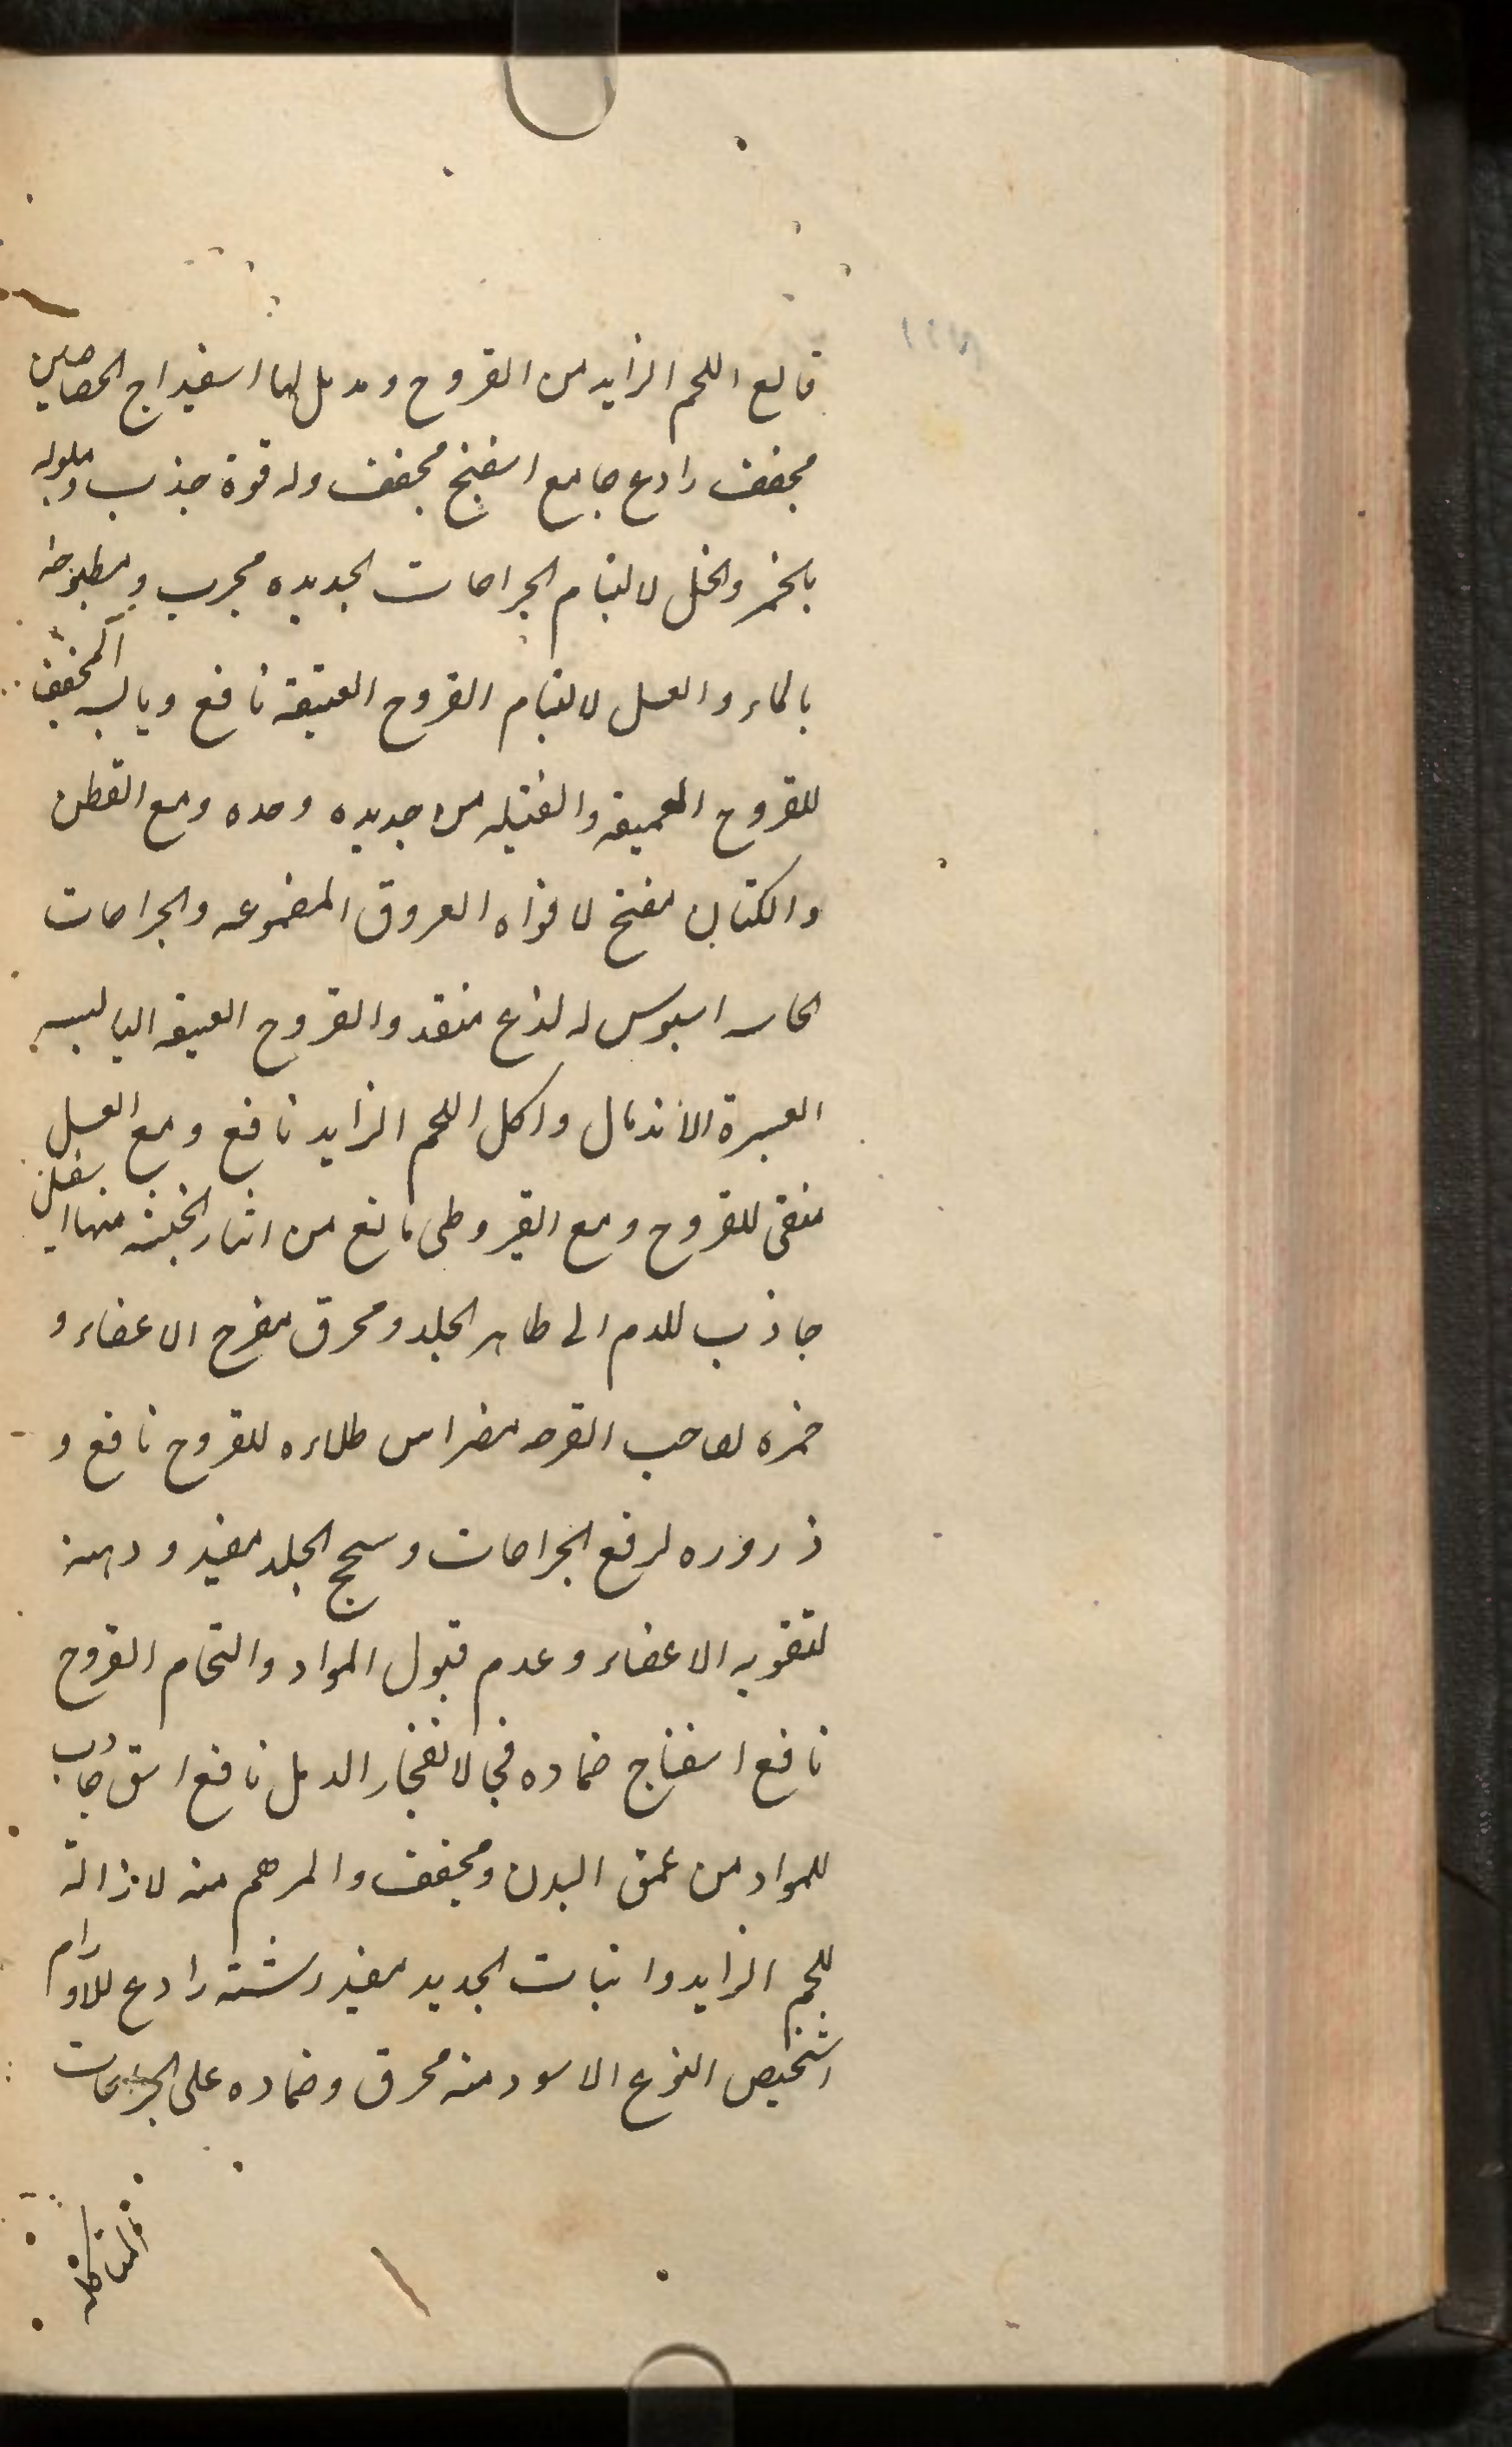 قالع اللحم الزايد من القروح ومدمل لها اسفيداج الحصاصين
مجفف رادع جامع اسفنج مجفف وله قوة جذب وملوله
بالخمر والخل لالتيام الجراحات الجديده مجرب ومطبوخه
بالماء والعسل لالتيام القروح العتيقة نافع ويابسه المجفف
للقروح العميقه والفتيله من جديده وحده ومع القطن
والكتان مفتح لافواه العروق المضموعه والجراحات
الحاسه اسيوس له لذع منقد والقروح العتيقه اليابسه
العسرة الاندمال واكل اللحم الزايد نافع ومع العسل
منقى للقروح ومع القيروطى مانع من انتار الخبيثه منها اسقلن
جاذب للدم الى ظاهر الجلد ومحرق مقرح الاعضاء و
خمره لصاحب القرحه مضر اس طلاءه للقروح نافع و
ذروره لرفع الجراحات وسحج الجلد مفيد ودهنه
لتقويه الاعضاء وعدم قبول المواد والتحام القروح
نافع اسفناج ضماده في لانفجار الدمل نافع اشق جاذب
للمواد من عمق البدن ومجفف والمرهم منه لازالة
للحم الزايد وانبات الجديد مفيد رشته رادع للاورام
اشخيص النوع الاسود منه محرق وضماده على الجراحات
المتاكله